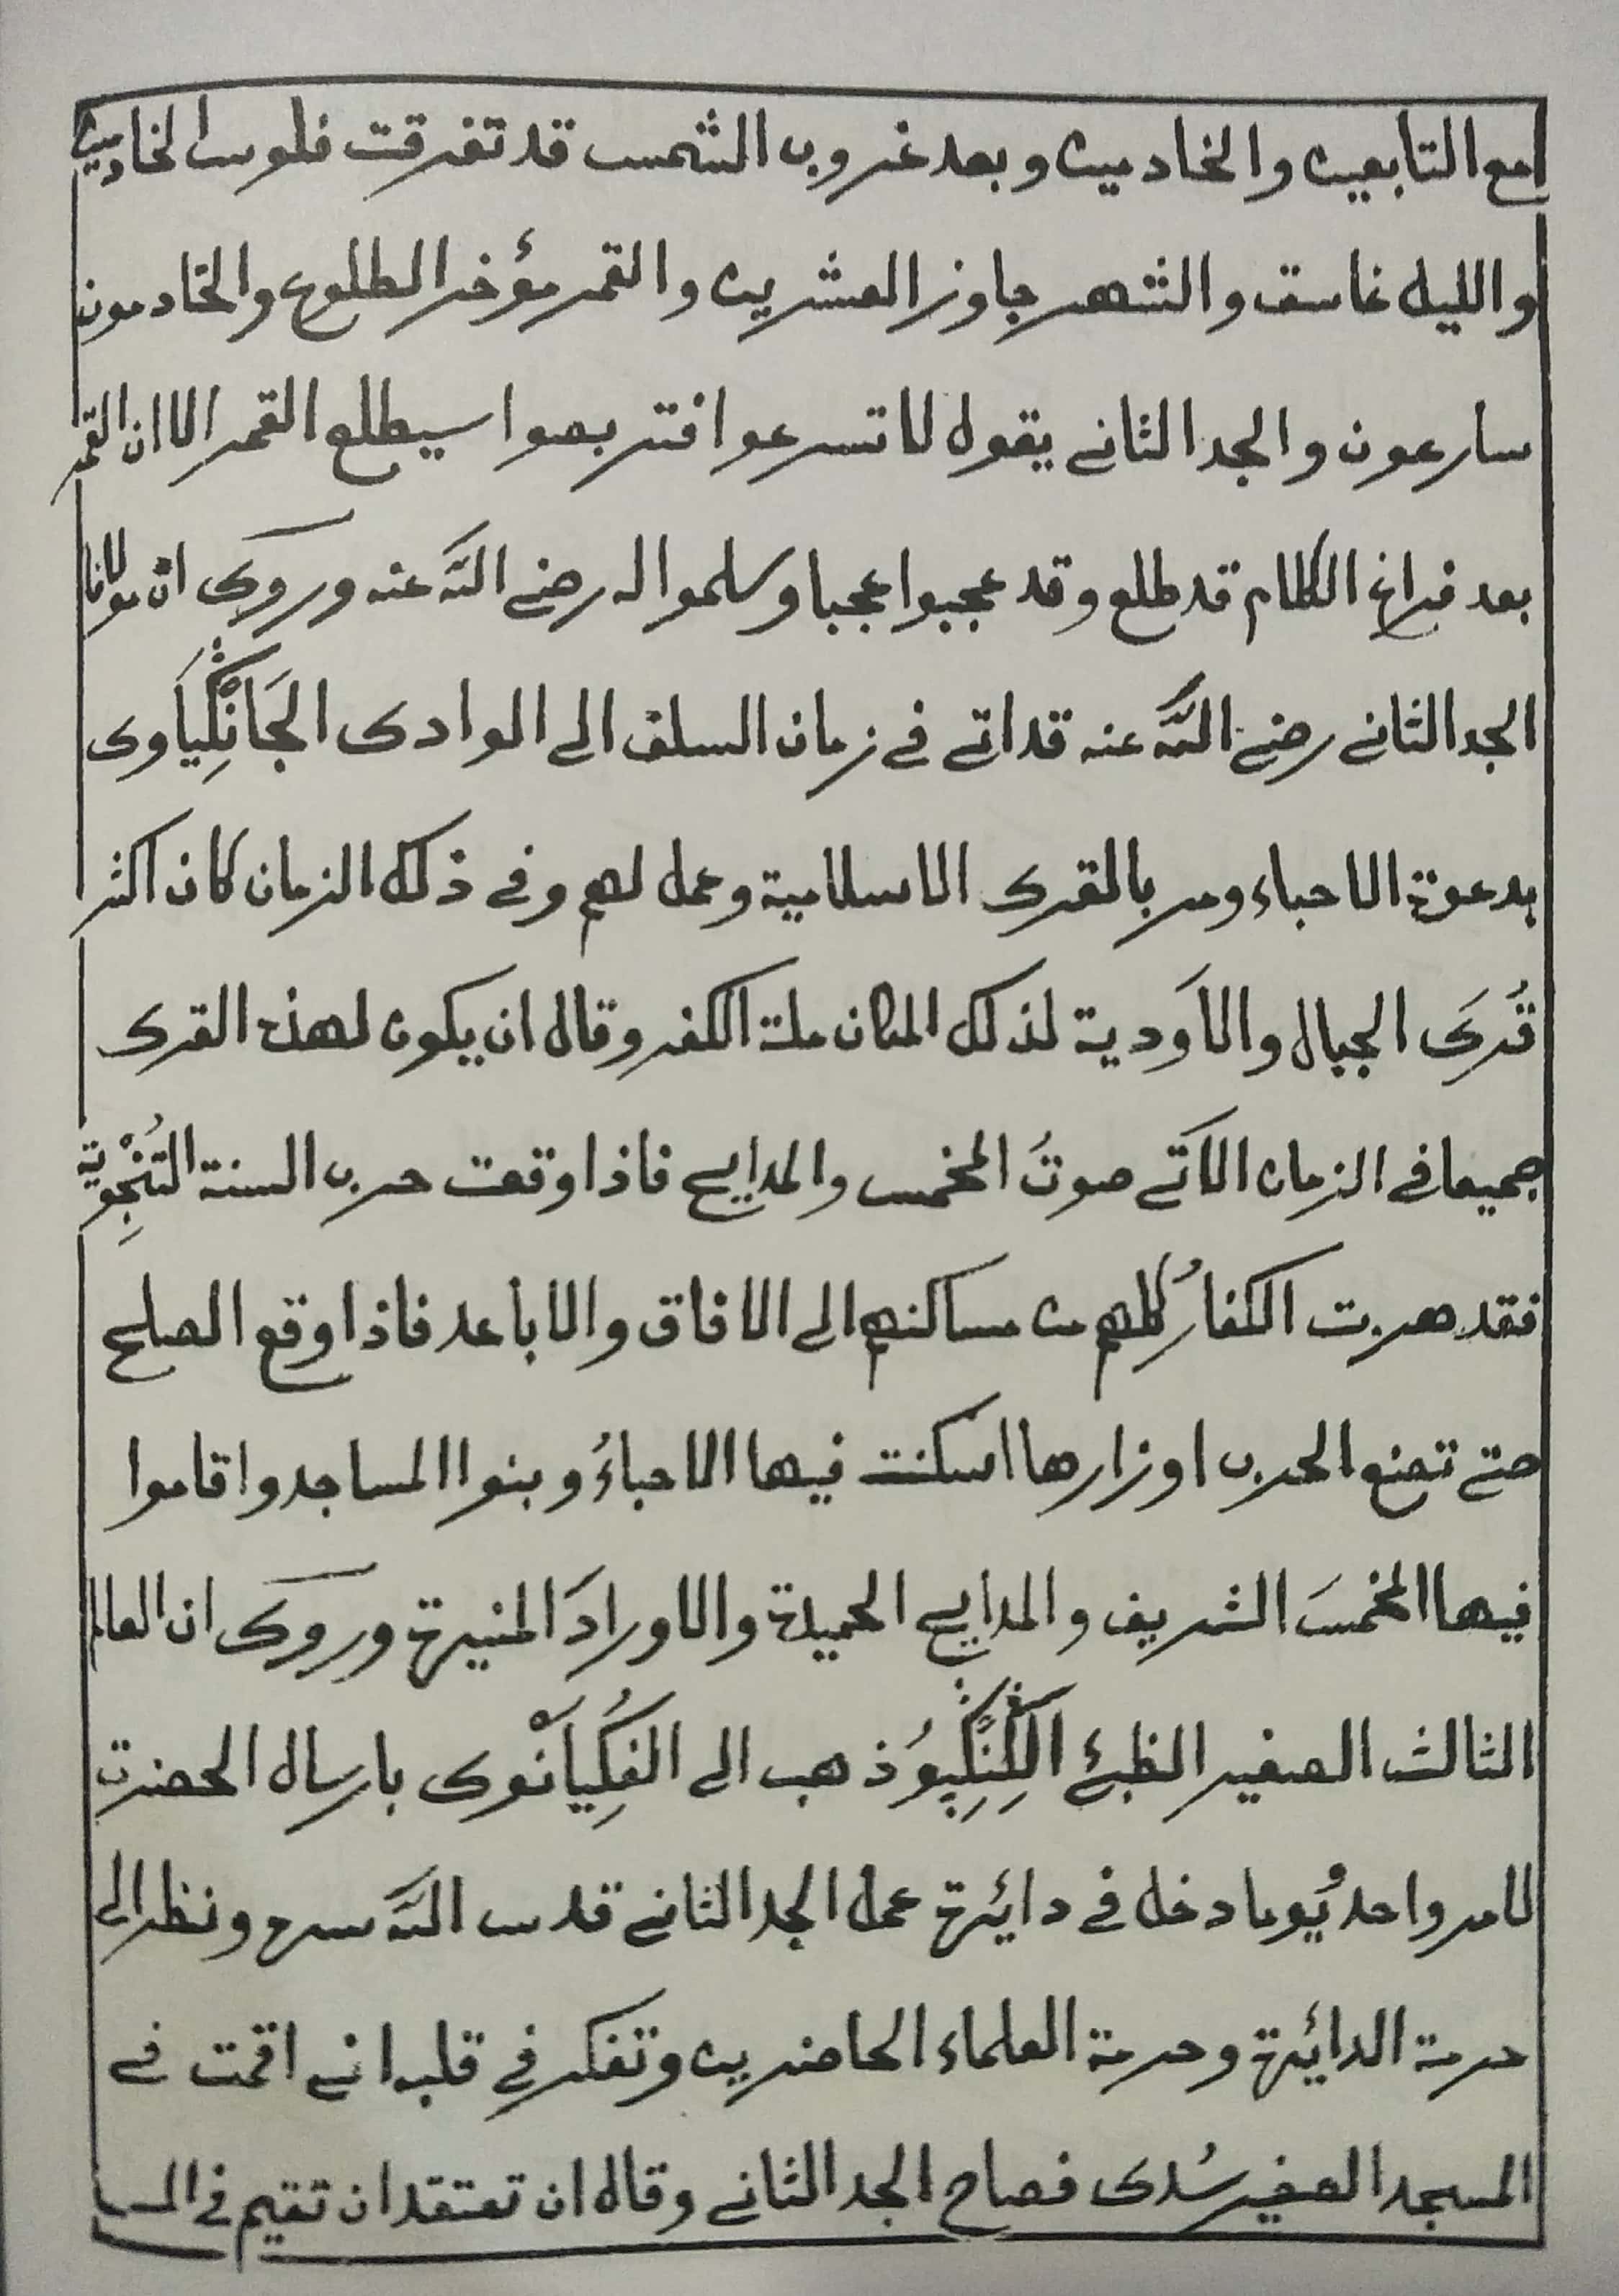 مع التابعين والخادمين وبعد غروب الشمس قد تفرقت قلوب الخادمين
والليل غاسق والشهر جاوز العشرين والقمر مؤخر الطلوع والخادمون
سارعون والجد الثاني يقول لا تسرعوا فتربصوا سيطلع القمر الا ان القمر
بعد فراغ الكلام قد طلع وقد عجبوا عجبا وسلموا له رضي الله عنه وروى ان مولانا
الجد الثاني رضي الله عنه قد اتى في زمان السلف الى الوادى
بدعوة الاحباء ومر بالقرى الاسلامية وعمل لهم وفي ذلك الزمان كان اكثر
قُرَى الجبال والاَودية لذلك المكان ملة الكفر وقال ان يكون لهذه القرى
جميعا في الزمان الآتي صوتُ المخمس والمدايح فاذا وقعت حرب السنة
فقد هربت الكفارُ كلهم من مساكنهم الى الافاق والاباعد فاذا وقع الصلح
حتى تضع الحرب اوزارها اسكنت فيها الاحباءُ وبنوا المساجد واقاموا
فيها المخمسَ الشريف والمدايح الحميدة والاورادَ المنيرة وروى ان العالم
الثالث الصغير ذهب الى بارسال الحضرت
لامر واحد يوما دخل في دائرة عمل الجد الثاني قدس الله سره ونظر الى
حرمة الدائرة وحرمة العلماء الحاضرين وتفكر في قلبه اني اقمت في
المسجد الصغير سُدى فصاح الجد الثاني وقال ان تعتقد ان تقيم في